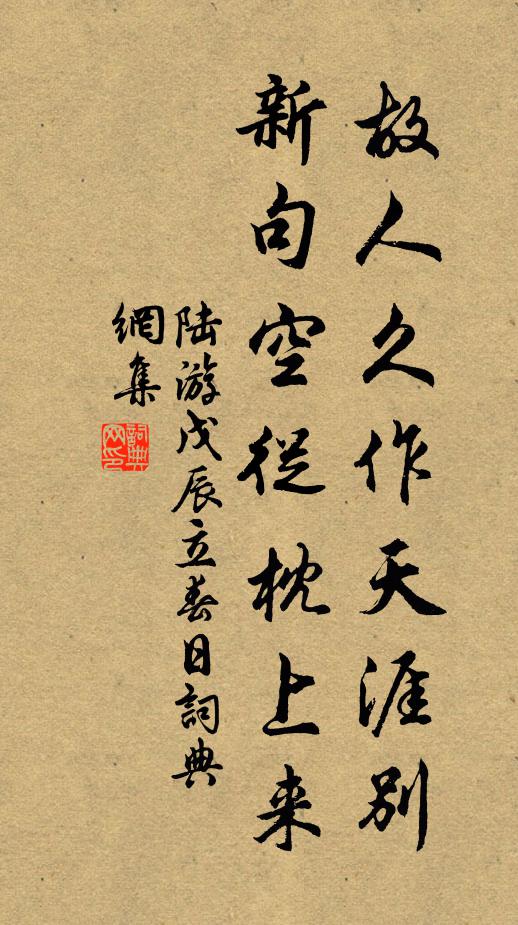 故人久作天涯别
新句空從枕上来
陆游戊辰立春日詞典
網集
詞典网印